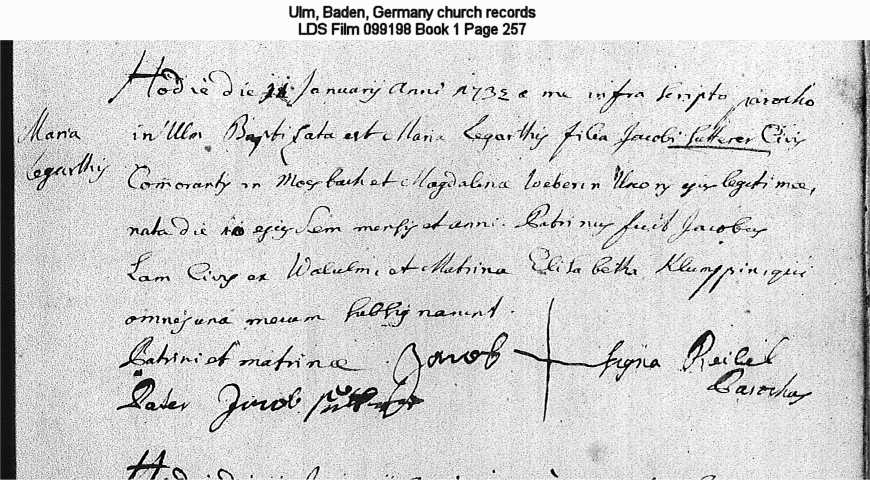 Ulm, Baden, Germany church records
LDS Film 099198 Book 1 Page 257
Hodie die 11 Januarij Anni 1732 a me infra scripto parocho
Maria
in Ulm Baptisata est Maria Legarthis filia Jacobi Sutterer Civis
Legarthis
Comorantis in Moesbach et Magdalena Weberin Uxoris ejus legitimae,
nata die 10 ejusdem mensis et anni. Patrinus fuit Jacobus
Lam Civis ex et Matrina Elisabetha Klumppin, qui
omnes una mecum
Patrini et matrinae Jacob signa
Parochus
Pater Jacob